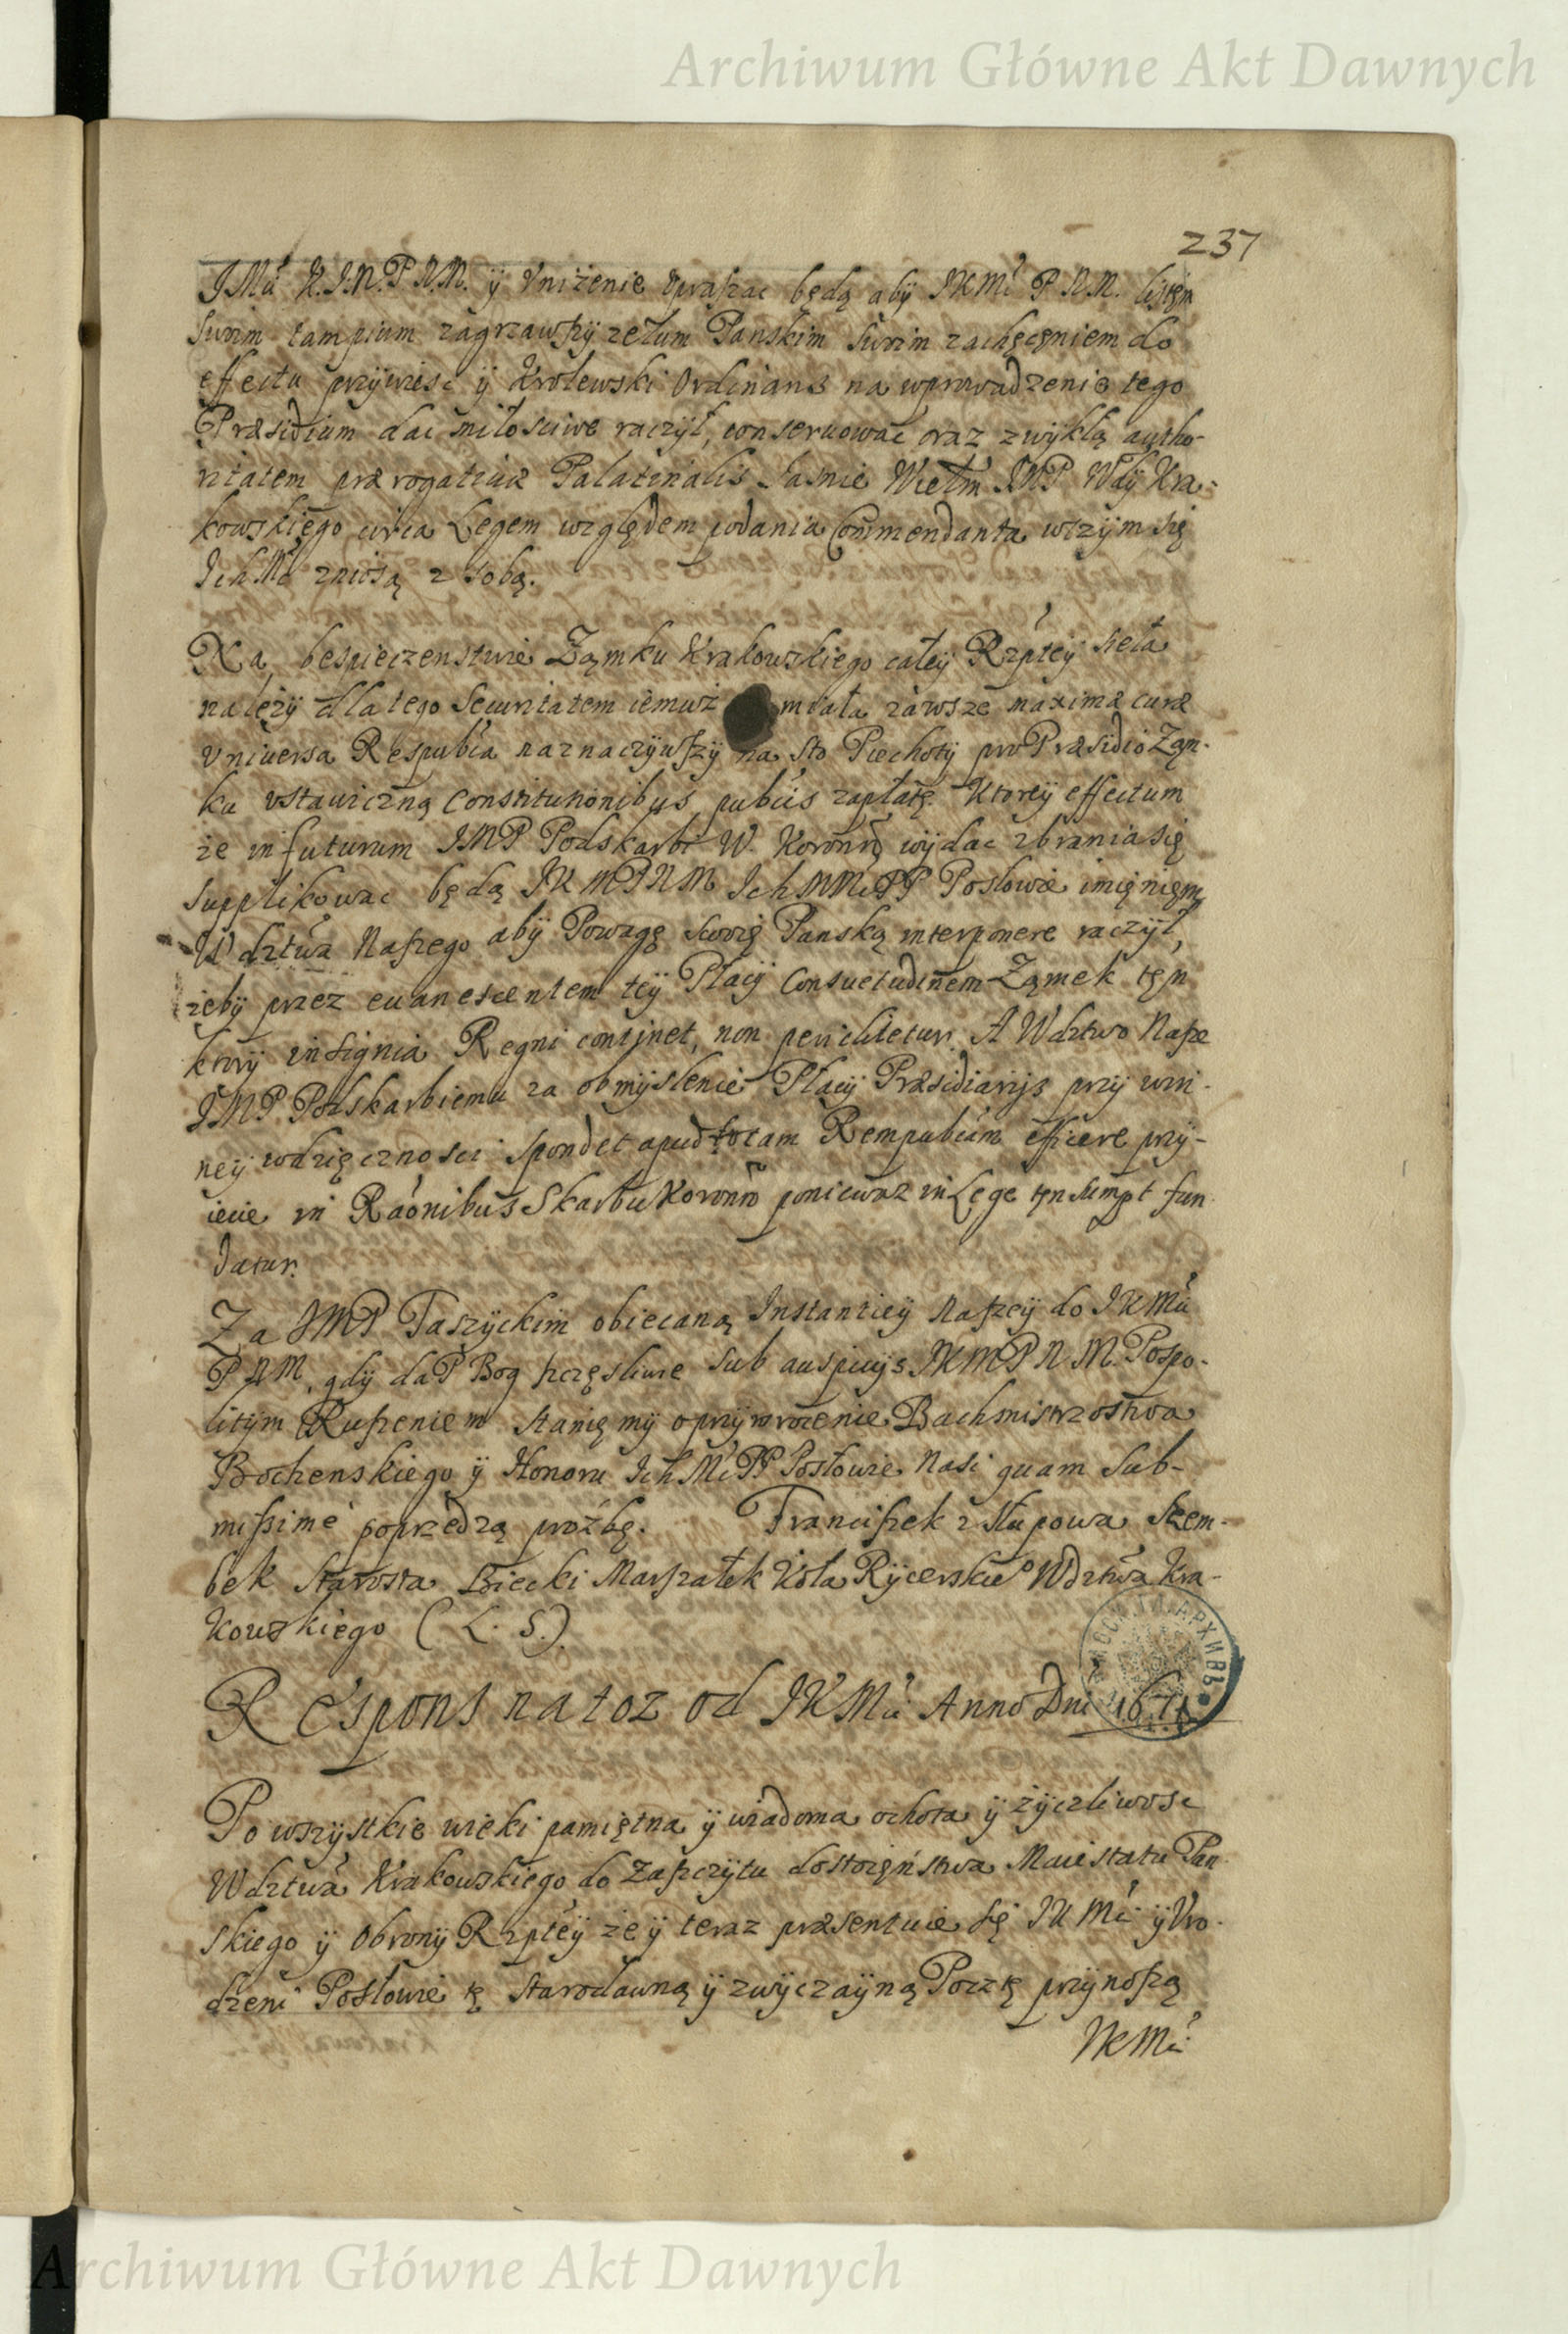 Archiwum Główne Akt Dawnych
237
JMći K.J.M.P.N.M. ÿ Vniżenie Vpraszac będą abÿ JKMć P.N.M. listem
swim tam pium zagrzawszÿ zelum Panskim swim zachęceniem do
effectu przÿwiesc ÿ Krolewski Ordinans na wprowadzenie tego
Præsidium dac miłosciwe raczÿł, conservowac oraz zwÿkłą autho-
ritatem prærogativæ Palatinalis Jasnie Wielm JMP Wdÿ Kra-
kowskiego circa Legem względem podania Commendanta wczÿm się
IchMć zniosą z sobą.
Na bespieczenstwie Zamku Krakowskiego całeÿ Rzpteÿ siela
należÿ dlatego securitatem iemuż miała zawsze maxima cura
Vniversa Respublca naznaczÿwszÿ na sto Piechotÿ pro Præsidio Zam-
ku vstawiczną Constitutionibus publcis zapłatę. Ktoreÿ effectum
że in futurum JMP Podskarbi W. Koronnÿ wÿdac zbrania się
supplikowac będą JKMPNM IchMMćPP Posłowie imięniem
Wdztwa Naszego abÿ Powagę swoię Panską interponere raczÿł,
żebÿ przez evanescentem teÿ Płacÿ Consuetudinem Zamek ten
ktorÿ insignia Regni continet, non periclitetur. A Wdztwo Nasze
JMP Podskarbiemu za obmÿslenie Płacÿ Præsidiarijs przÿ win-
neÿ wdzięcznosci spondet apud totam Rempublcam efficere przÿ-
ięcie in Raonibus Skarbu Koronno poniewaz in Lege ten sumpt fun
datur.
Za JMP Taszÿckim obiecaną Instantieÿ Naszeÿ do JKMći
PNM, gdÿ da P Bog szczęsliwie sub auspicijs JKMPNM. Pospo-
litÿm Ruszeniem staniemÿ o przÿwrocenie Bachmistrzostwa
Bochenskiego ÿ Honoru IchMćPP Posłowie Nasi quam sub-
missimé poprzedzą proźbę. Franciszek z Słupowa Szem-
bek Starosta Biecki Marszałek Koła Rÿcerskie° Wdztwa Kra-
kowskiego (L. S.)
Respons na toz od JKMći Anno Dni 1671
Po wszÿstkie wieki pamiętna ÿ wiadoma ochota ÿ żÿczliwosc
Wdztwa Krakowskiego do zaszczÿtu dostoięństwa Maiestatu Pan-
skiego ÿ Obronÿ Rzpteÿ że ÿ teraz præsentuie się JKMći ÿ Vro-
dzeni Posłowie tę starodawną ÿ zwÿczaÿną Poczte przÿnoszą
JKMći
Archiwum Główne Akt Dawnych